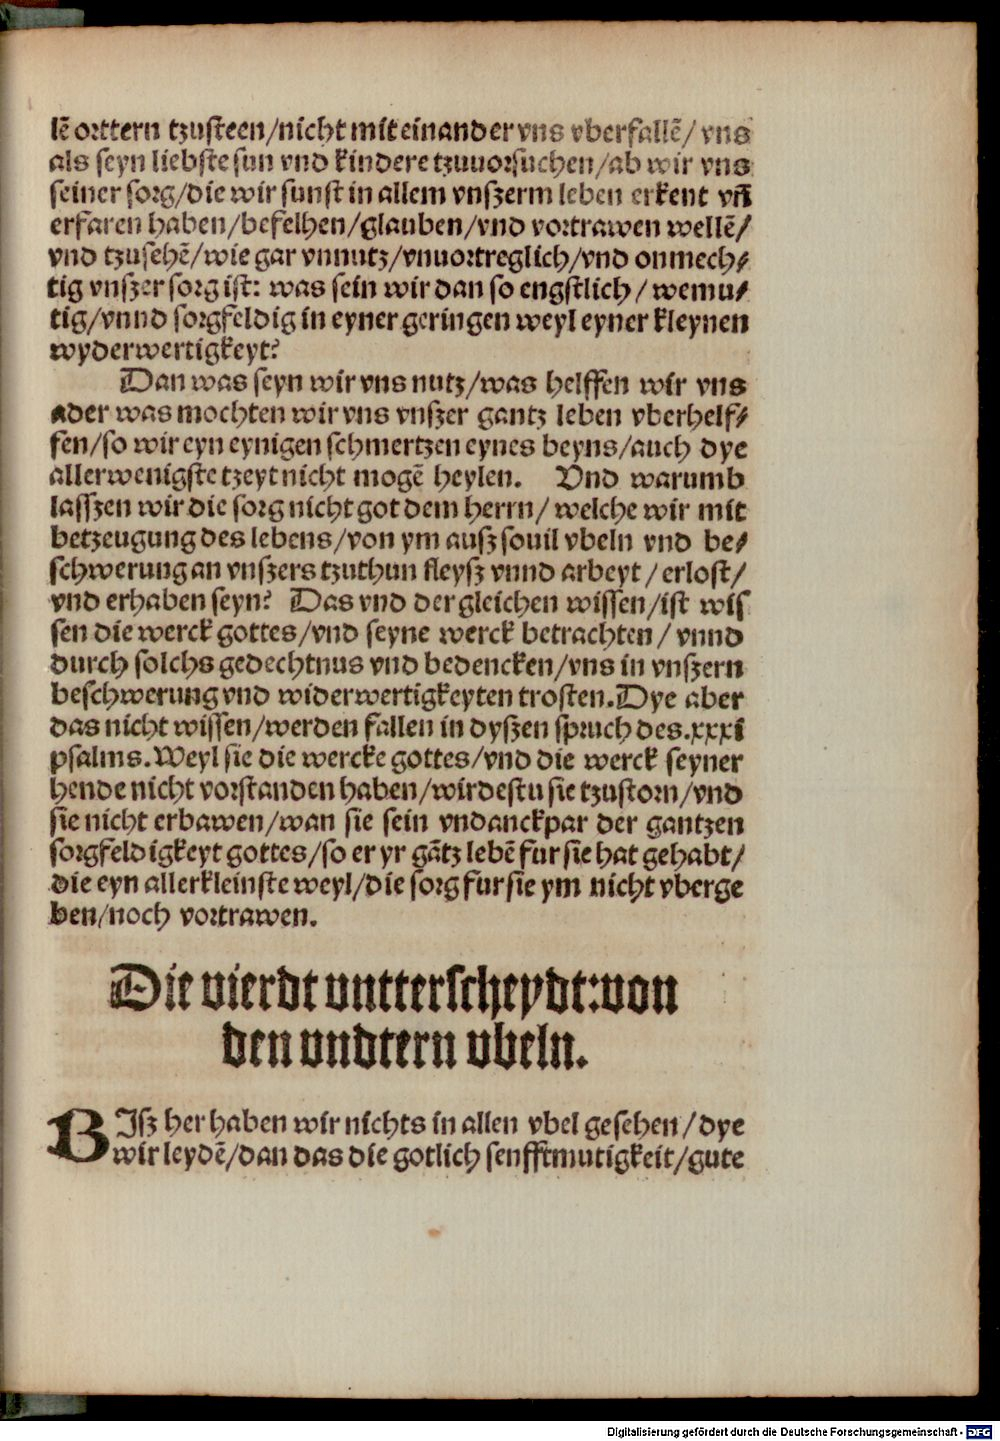 lē orttern tzusteen/nicht mit einander vns vberfallē/ vns
als seyn liebste sun vnd kindere tzuuorsuchen/ab wir vns
seiner sorg/die wir sunst in allem vnszerm leben erkent vñ
erfaren haben/befelhen/glauben/vnd vortrawen wellē/
vnd tzusehē/wie gar vnnutz/vnuortreglich/vnd onmech⸗
tig vnszer sorg ist: was sein wir dan so engstlich/ wemu⸗
tig/vnnd sorgfeldig in eyner geringen weyl eyner kleynen
wyderwertigkeyt?
Dan was seyn wir vns nutz/was helffen wir vns
ader was mochten wir vns vnszer gantz leben vberhelf⸗
fen/so wir eyn eynigen schmertzen eynes beyns/auch dye
allerwenigste tzeyt nicht mogē heylen. Vnd warumb
lasszen wir die sorg nicht got dem herrn/ welche wir mit
betzeugung des lebens/von ym ausz souil vbeln vnd be⸗
schwerung an vnszers tzuthun fleysz vnnd arbeyt/erlost/
vnd erhaben seyn? Das vnd der gleichen wissen/ist wis
sen die werck gottes/vnd seyne werck betrachten/ vnnd
durch solchs gedechtnus vnd bedencken/vns in vnszern
beschwerung vnd widerwertigkeyten trosten. Dye aber
das nicht wissen/werden fallen in dyszen spruch des .xxxi
psalms. Weyl sie die wercke gottes/vnd die werck seyner
hende nicht vorstanden haben/wirdestu sie tzustorn/vnd
sie nicht erbawen/wan sie sein vndanckpar der gantzen
sorgfeldigkeyt gottes/so er yr gātz lebē fur sie hat gehabt/
die eyn allerkleinste weyl/die sorg fur sie ym nicht vberge
ben/noch vortrawen.
Die vierdt vntterscheydt: von
den vndtern vbeln.
BIsz her haben wir nichts in allen vbel gesehen/dye
wir leydē/dan das die gotlich senfftmutigkeit/gute
Digitalisierung gefördert durch die Deutsche Forschungsgemeinschaft - DFG